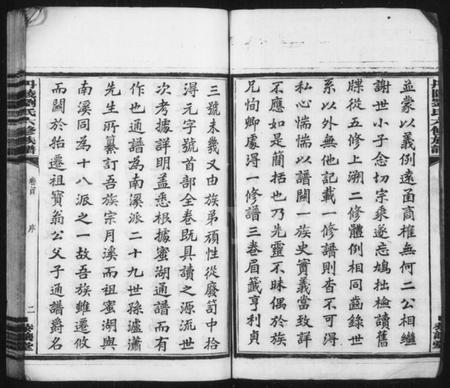 並蒙以義例遠函商榷無何二公相繼
謝世小子念切宗乘遂忘鳩拙檢讀舊
牒從五修上溯二修體例相同齒錄世
系以外無他記載一修譜則杳不可得
私心惴惴以譜關一族史實義當致詳
不應如是簡括也乃先靈不昧偶於族
兄恂卿處得一修譜三卷眉籤亨利貞
三號未幾又由族弟頑性從廢笥中拾
得元字號首部全卷既具讀之源流世
次考據詳明蓋悉根據蜜湖通譜而有
作也通譜為南溪派二十九世孫壚瀟
先生所纂訂吾族宗月溪而祖蜜湖與
南溪同為十八派之一故吾族雖遷攸
而關於抬遷祖寶翁公父子通譜爵名
卷首
序
二